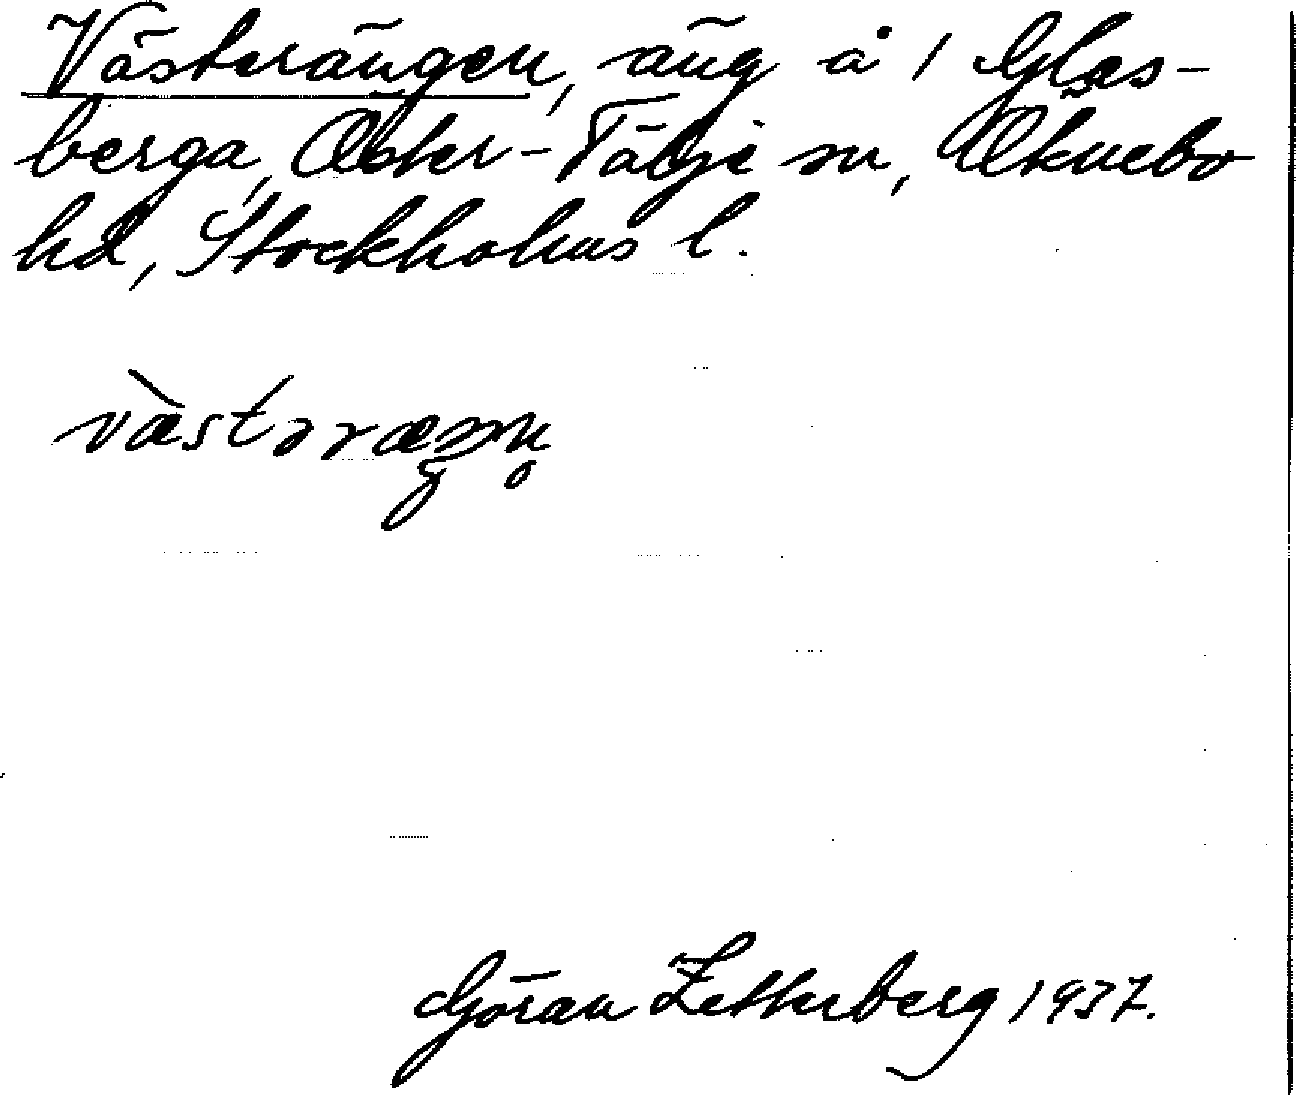 Västerängen, äng å 1 Glas-
berga, Öster-Tälje sn, Öknebo
hd, Stockholms l.
västəræŋn̥
Göran Zetterberg 1937.